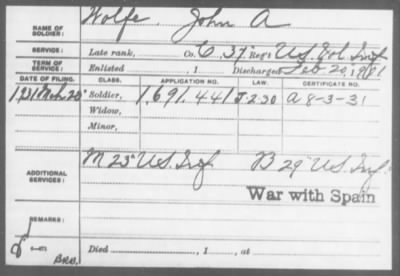 NAME OF SOLDIER: Wolfe, John A
SERVICE: Late rank, Co. C, 37 Reg't U.S. Vol. Inf
TERM OF SERVICE: Enlisted , 1 Discharged Feb 20, 1901
DATE OF FILING. CLASS. APPLICATION NO. LAW. CERTIFICATE NO.
1931 Mch 20 Soldier, 1,691,441 J-2.30 A 8-3-31
Widow,
Minor,
ADDITIONAL SERVICES: M 23" U.S. Inf. B 29" U.S. Inf.
War with Spain
REMARKS:
Died , 1 , at